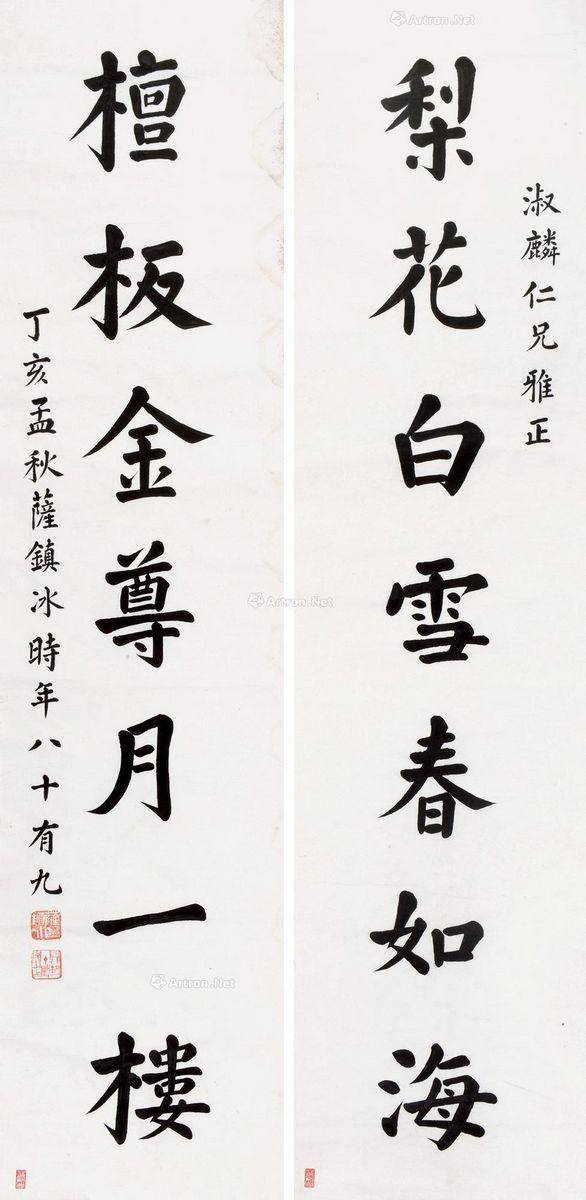 淑麟仁兄雅正
梨花白雪春如海
檀板金尊月一樓
丁亥孟秋薩鎮冰時年八十有九
Artron.Net
Artron.Net
Artron.Net
Artron.Net